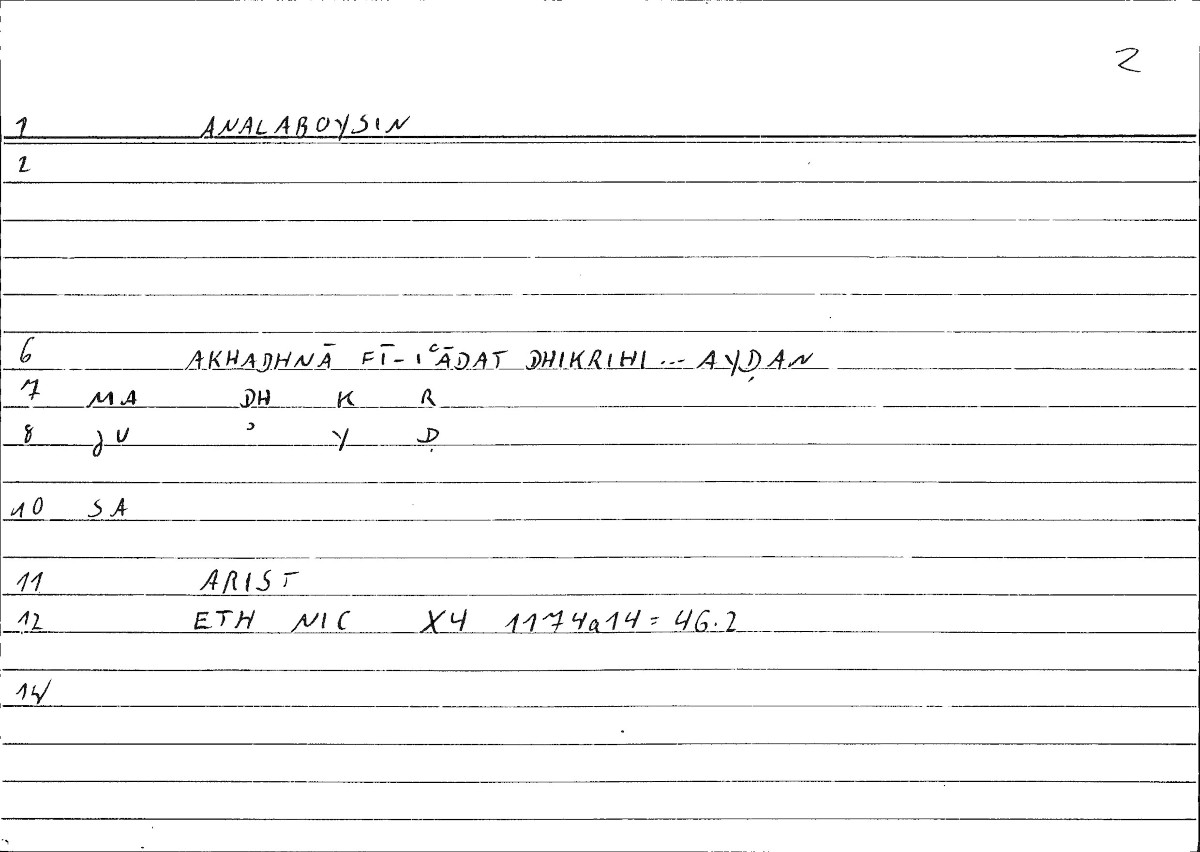 2
1 ANALABOYSIN
2
6 AKHADHNĀ FĪ-IʿĀDAT DHIKRIHI... AYḌAN
7 MA DH K R
8 JU ʾ Y Ḍ
10 SA
11 ARIST
12 ETH NIC X4 1174a14 = 46.2
14